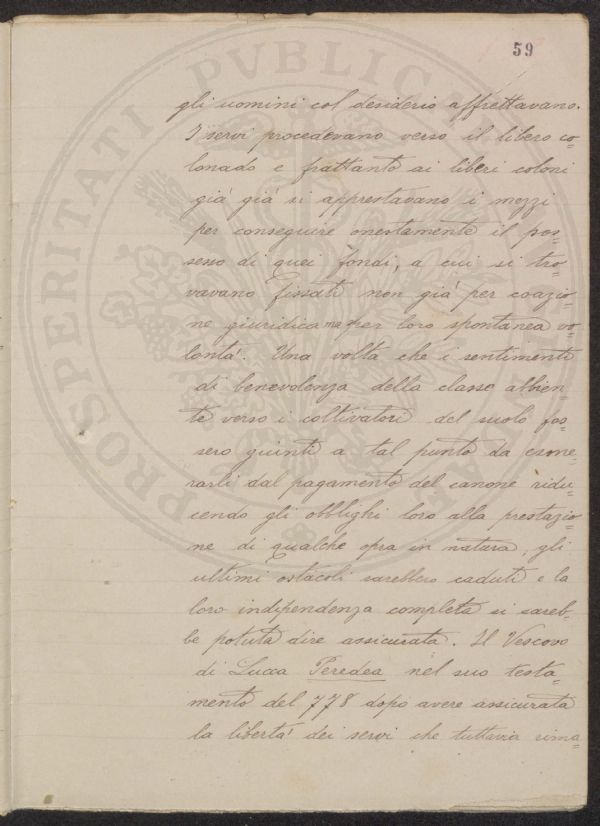 59
gli uomini col desiderio affrettavano.
I servi procedevano verso il libero co=
lonado e frattanto ai liberi coloni
già già si apprestavano i mezzi
per conseguire onestamente il pos=
sesso di quei fondi, a cui si tro=
vavano fissati non già per coazio=
ne giuridica ma per loro spontanea vo=
lontà. Una volta che i sentimenti
di benevolenza della classe abbien=
te verso i coltivatori del suolo fos=
sero giunti a tal punto da esone=
rarli dal pagamento del canone ridu=
cendo gli obblighi loro alla prestazio=
ne di qualche opra in natura, gli
ultimi ostacoli sarebbero caduti e la
loro indipendenza completa si sareb=
be potuta dire assicurata. Il Vescovo
di Lucca Peredea nel suo testa=
mento del 778 dopo avere assicurata
la libertà dei servi che tuttavia rima=
PROSPERITATI PVBLICAE